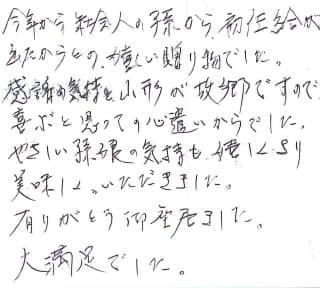 今年から社会人の孫から初任給が
出たからとの、嬉しい贈り物でした。
感謝の気持と山形が故郷ですので
喜ぶと思っての心遣いからでした。
やさしい孫娘の気持も嬉しくより
美味しく、いただきました。
有りがとう御座居ました。
大満足でした。